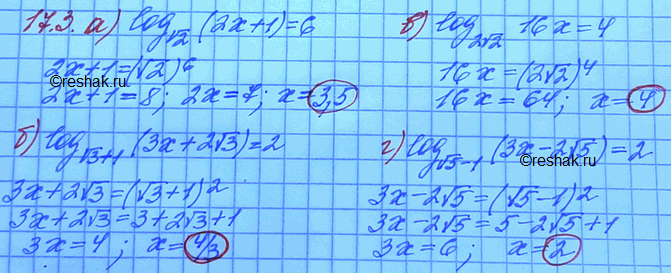 17.3. а) log_√2 (2x+1)=6
2x+1=(√2)^6
2x+1=8; 2x=7; x=3,5
©reshak.ru
б) log_√3+1 (3x+2√3)=2
3x+2√3=(√3+1)^2
3x+2√3=3+2√3+1
3x=4; x=4/3
в) log_2√2 16x=4
16x=(2√2)^4
16x=64; x=4
г) log_√5-1 (3x-2√5)=2
©reshak.ru
3x-2√5=(√5-1)^2
3x-2√5=5-2√5+1
3x=6; x=2